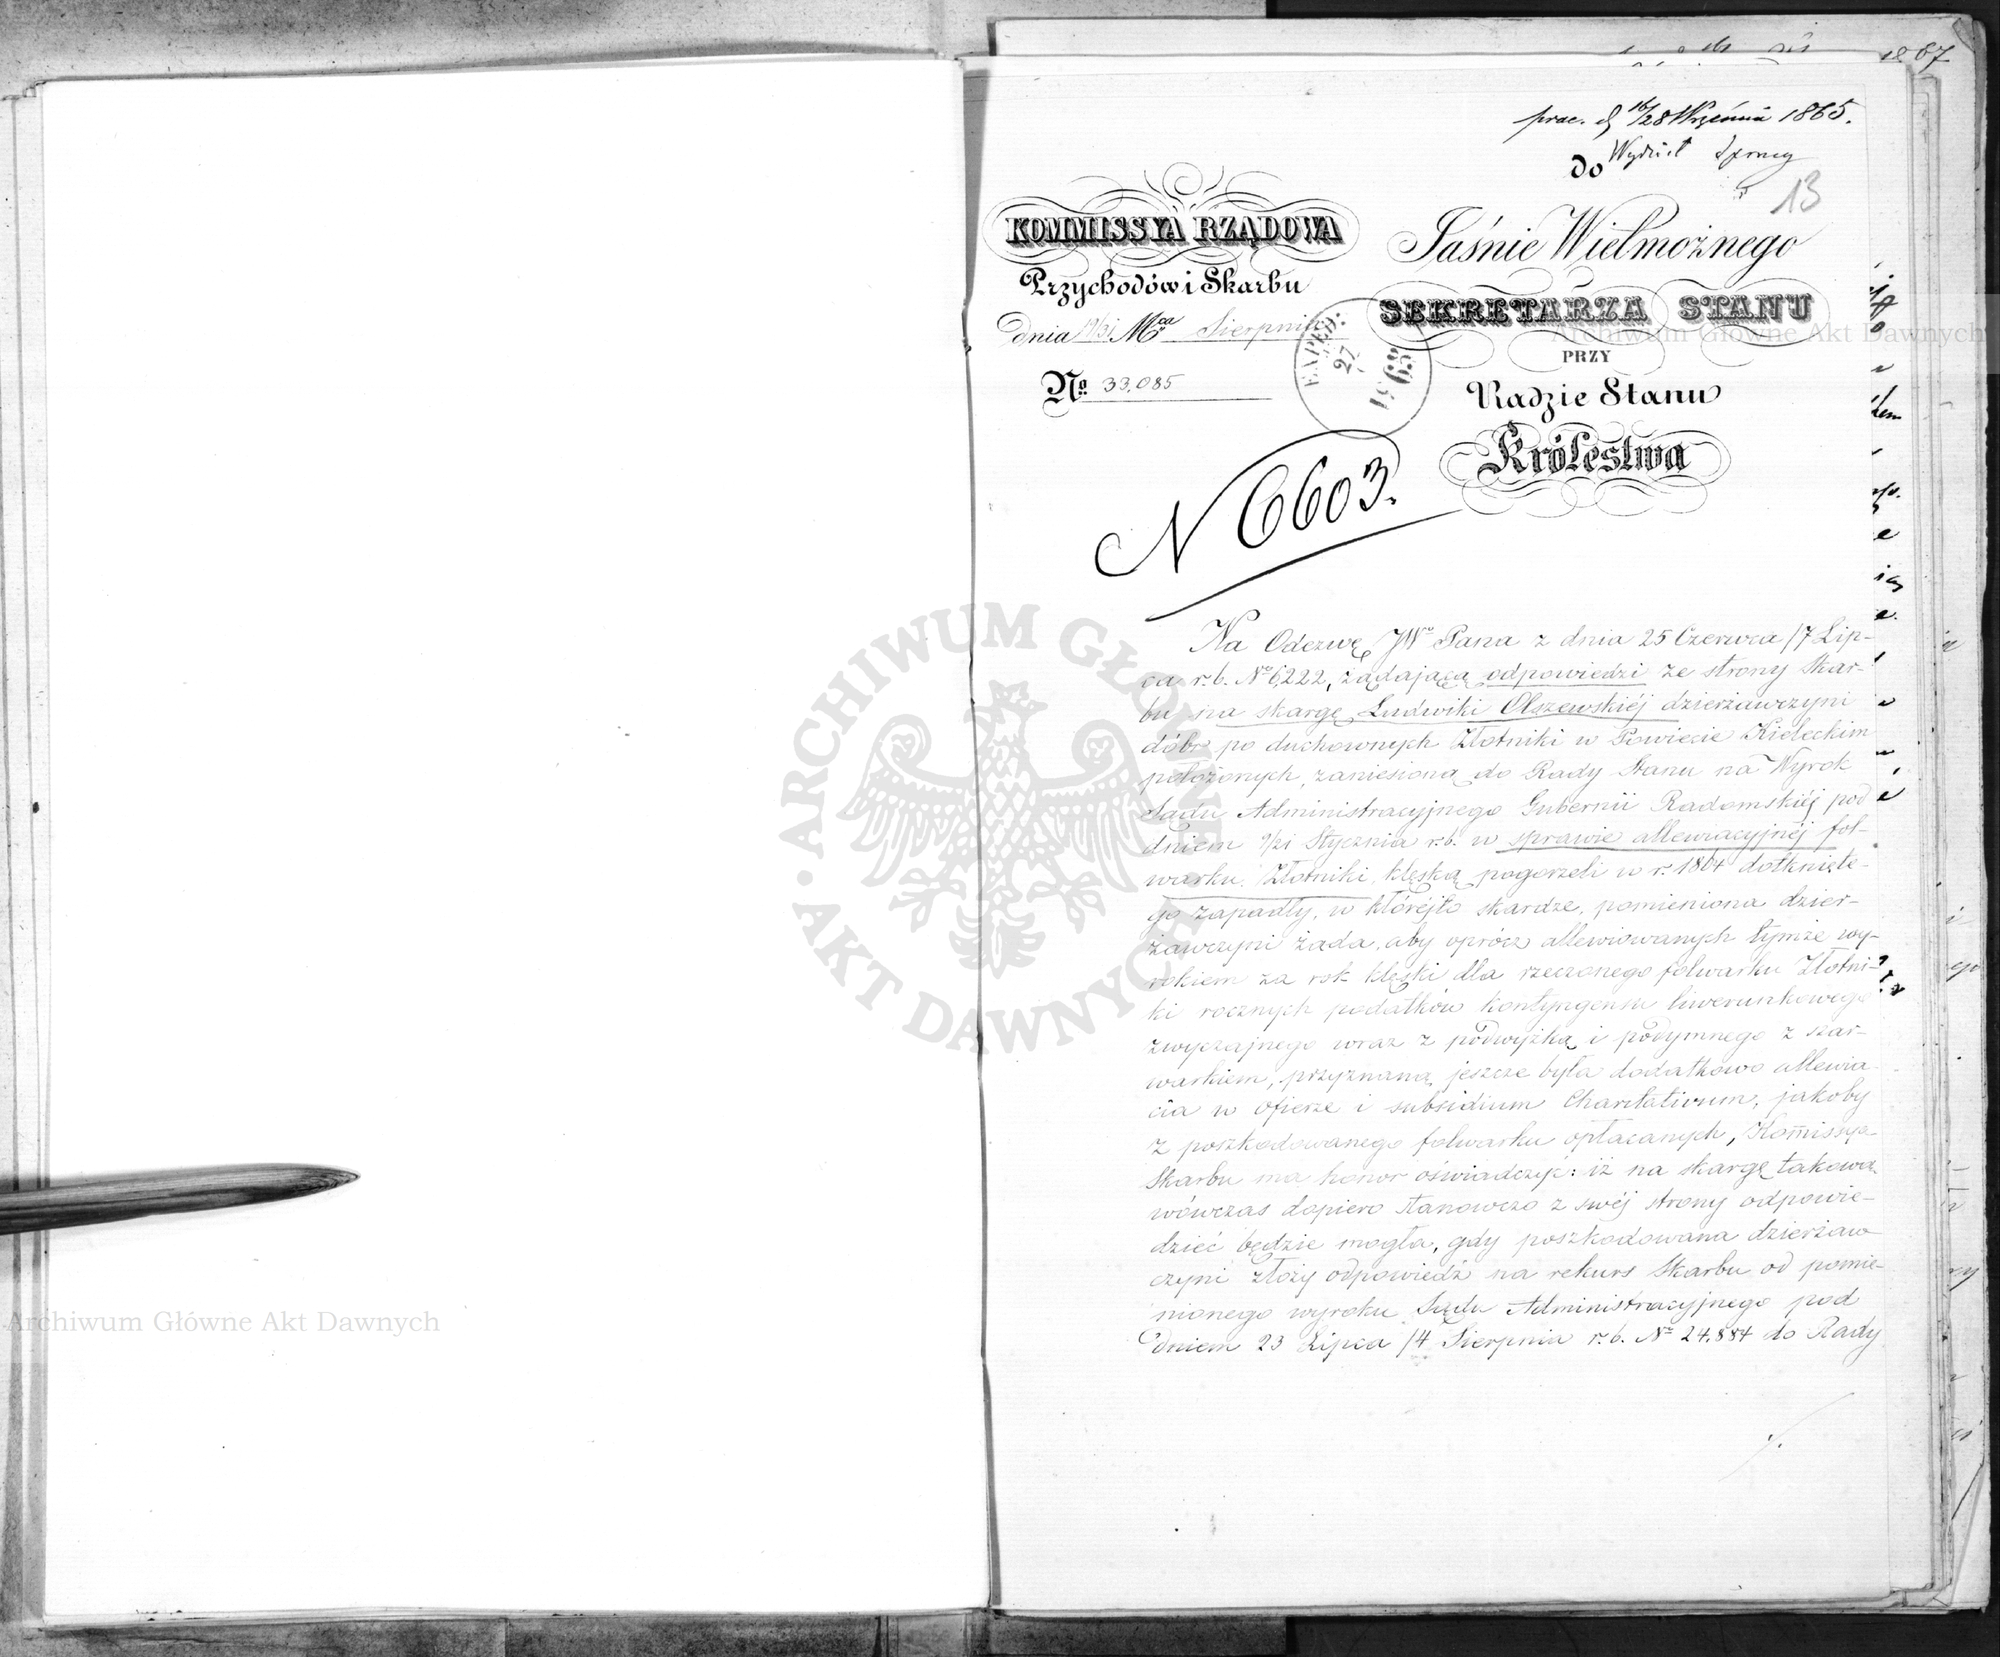 1867
prac. d. 16/28 Września 1865.
do Wydział Sporny
13
KOMMISSYA RZĄDOWA
Przychodów i Skarbu
dnia 19/31 Mca Sierpnia
No. 33,085
EXPED:
27
1865
Jaśnie Wielmożnego
SEKRETARZA STANU
PRZY
Radzie Stanu
Królestwa
N 6603.
Na Odezwę JWo Pana z dnia 25 Czerwca /7 Lip-
ca r. b. No 6,222, żądającą odpowiedzi ze strony Skar-
bu na skargę Ludwiki Olszewskiéj dzierżawczyni
dóbr po duchownych Złotniki w Powiecie Kieleckim
położonych, zaniesioną do Rady Stanu na Wyrok
Sądu Administracyjnego Gubernii Radomskiéj pod
dniem 9/21 Stycznia r. b. w sprawie allewiacyjnéj fol-
warku Złotniki, klęską pogorzeli w r. 1864 dotknięte-
go zapadły, w któréjto skardze, pomieniona dzier-
żawczyni żąda, aby oprócz allewiowanych tymże wy-
rokiem za rok klęski dla rzeczonego folwarku Złotni-
ki rocznych podatków kontyngensu liwerunkowego
zwyczajnego wraz z podwyżką i podymnego z szar-
warkiem, przyznaną jeszcze była dodatkowo allewia-
cia w ofierze i subsidium Charitativum, jakoby
z poszkodowanego folwarku opłacanych, Kommissya
Skarbu ma honor oświadczyć: iż na skargę takową
wówczas dopiero stanowczo z swéj strony odpowie-
dzieć będzie mogła, gdy poszkodowana dzierżaw-
czyni złoży odpowiedź na rekurs Skarbu od pomie-
nionego wyroku Sądu Administracyjnego pod
dniem 23 Lipca /4 Sierpnia r. b. No 24,884 do Rady
ARCHIWUM GŁÓWNE AKT DAWNYCH
Archiwum Główne Akt Dawnych
Archiwum Główne Akt Dawnych